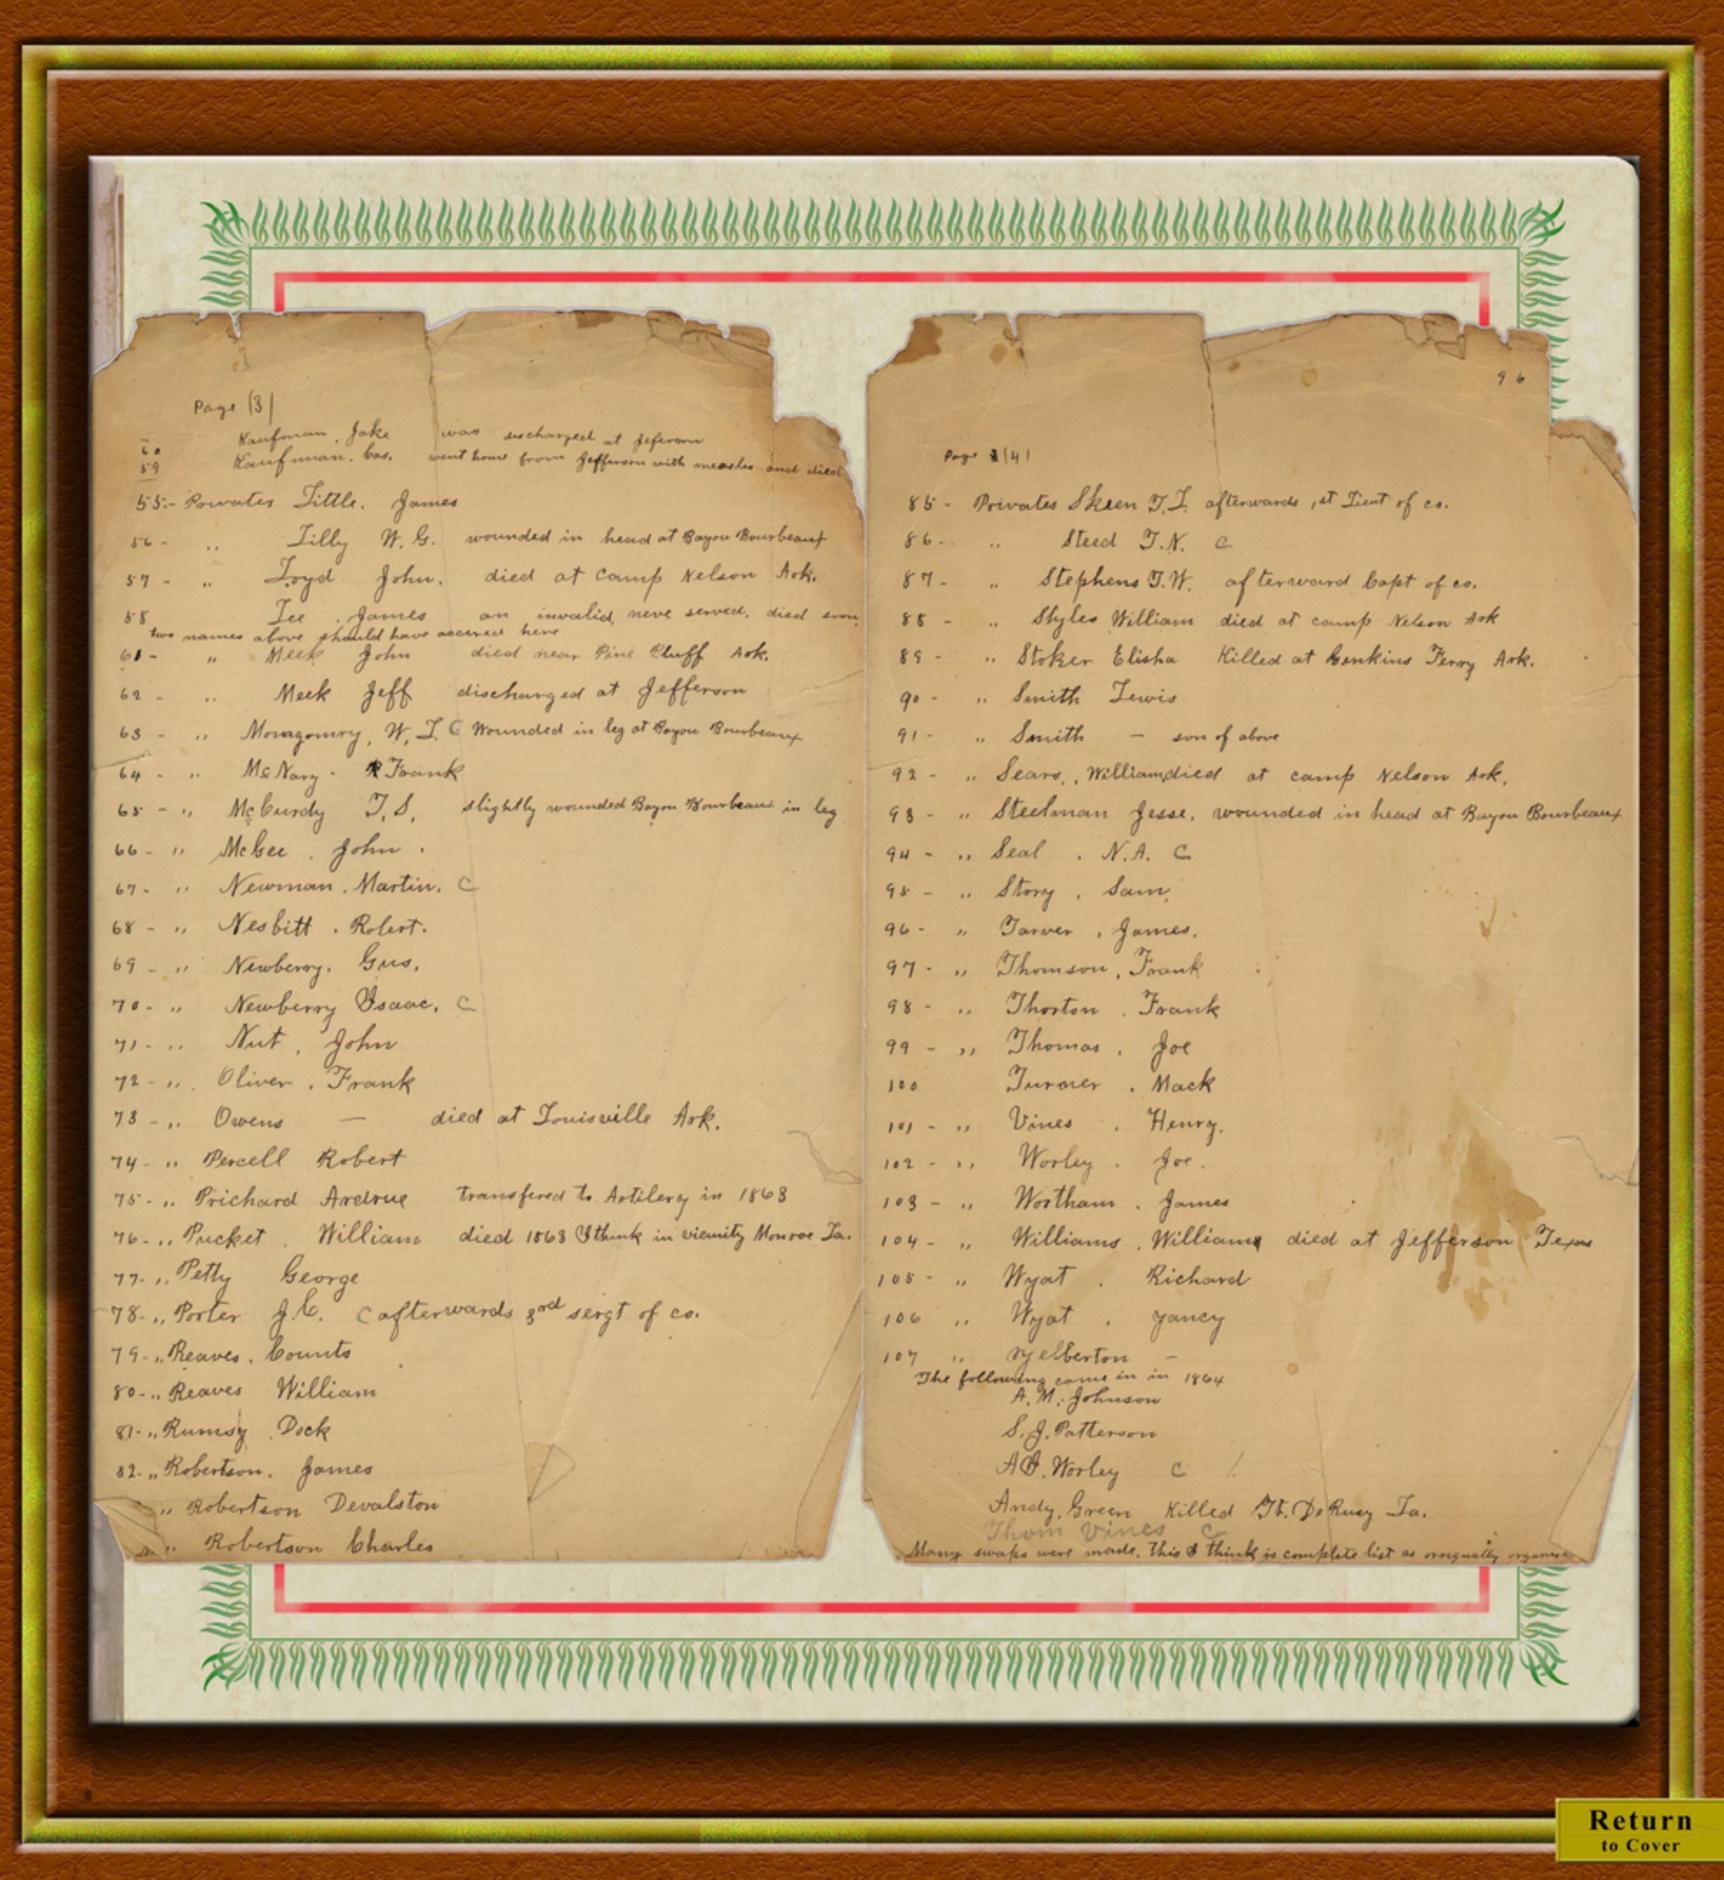 Page (3)
60 Kaufman, Jake was discharged at Jefferson
59 Kaufman. Cas. went home from Jefferson with measles and died
55- Privates Little. James
56- " Lilly W. G. wounded in head at Bayou Bourbeaux
57- " Loyd John. died at Camp Nelson Ark.
58 Lee . James an invalid, neve served, died soon
two names above should have occured here
61- " Meek John died near Pine Bluff Ark.
62- " Meek Jeff discharged at Jefferson
63- " Momgomry, W, L C Wounded in leg at Bayou Bourbeaux
64- " McNary - Frank
65- " McCurdy T. S. slightly wounded Bayou Bourbeaux in leg
66- " McGee . John .
67- " Newman . Martin. C
68- " Nesbitt . Robert.
69- " Newberry. Gus.
70- " Newberry Isaac. C
71- " Nut . John
72- " Oliver . Frank
73- " Owens — died at Louisville Ark.
74- " Percell Robert
75- " Prichard Ardrue transfered to Artilery in 1863
76- " Pucket . William died 1863 I think in vicinity Monroe La.
77- " Petty George
78- " Porter J. C. C afterwards 3rd sergt of co.
79- " Reaves . Counts
80- " Reaves William
81- " Rumsy . Dock
82- " Robertson. James
" Robertson Devalston
" Robertson Charles
96
Page (4)
85- Privates Skeen T. L. afterwards 1st Lieut of co.
86- " Steed T. N. C
87- " Stephens T. W. afterward Capt of co.
88- " Styles William died at camp Nelson Ark
89- " Stoker Elisha Killed at Genkins Ferry Ark.
90- " Smith Lewis
91- " Smith — son of above
92- " Sears, William died at camp Nelson Ark.
93- " Steelman Jesse. wounded in head at Bayou Bourbeaux
94- " Seal . N. A. C
95- " Story . Sam.
96- " Tarver . James.
97- " Thomson, Frank
98- " Thorton . Frank
99- " Thomas . Joe
100 Turner . Mack
101- " Vines . Henry.
102- " Worley . Joe.
103- " Wortham . James
104- " Williams . William died at Jefferson Texas
105- " Wyat . Richard
106 " Wyat . Yancy
107 " Yelberton —
The following came in in 1864
A. M. Johnson
S. J. Patterson
A J. Worley C
Andy. Green Killed Ft. DeRusy La.
Thom Vines C
Many swaps were made. This I think is complete list as origually
Return
to Cover